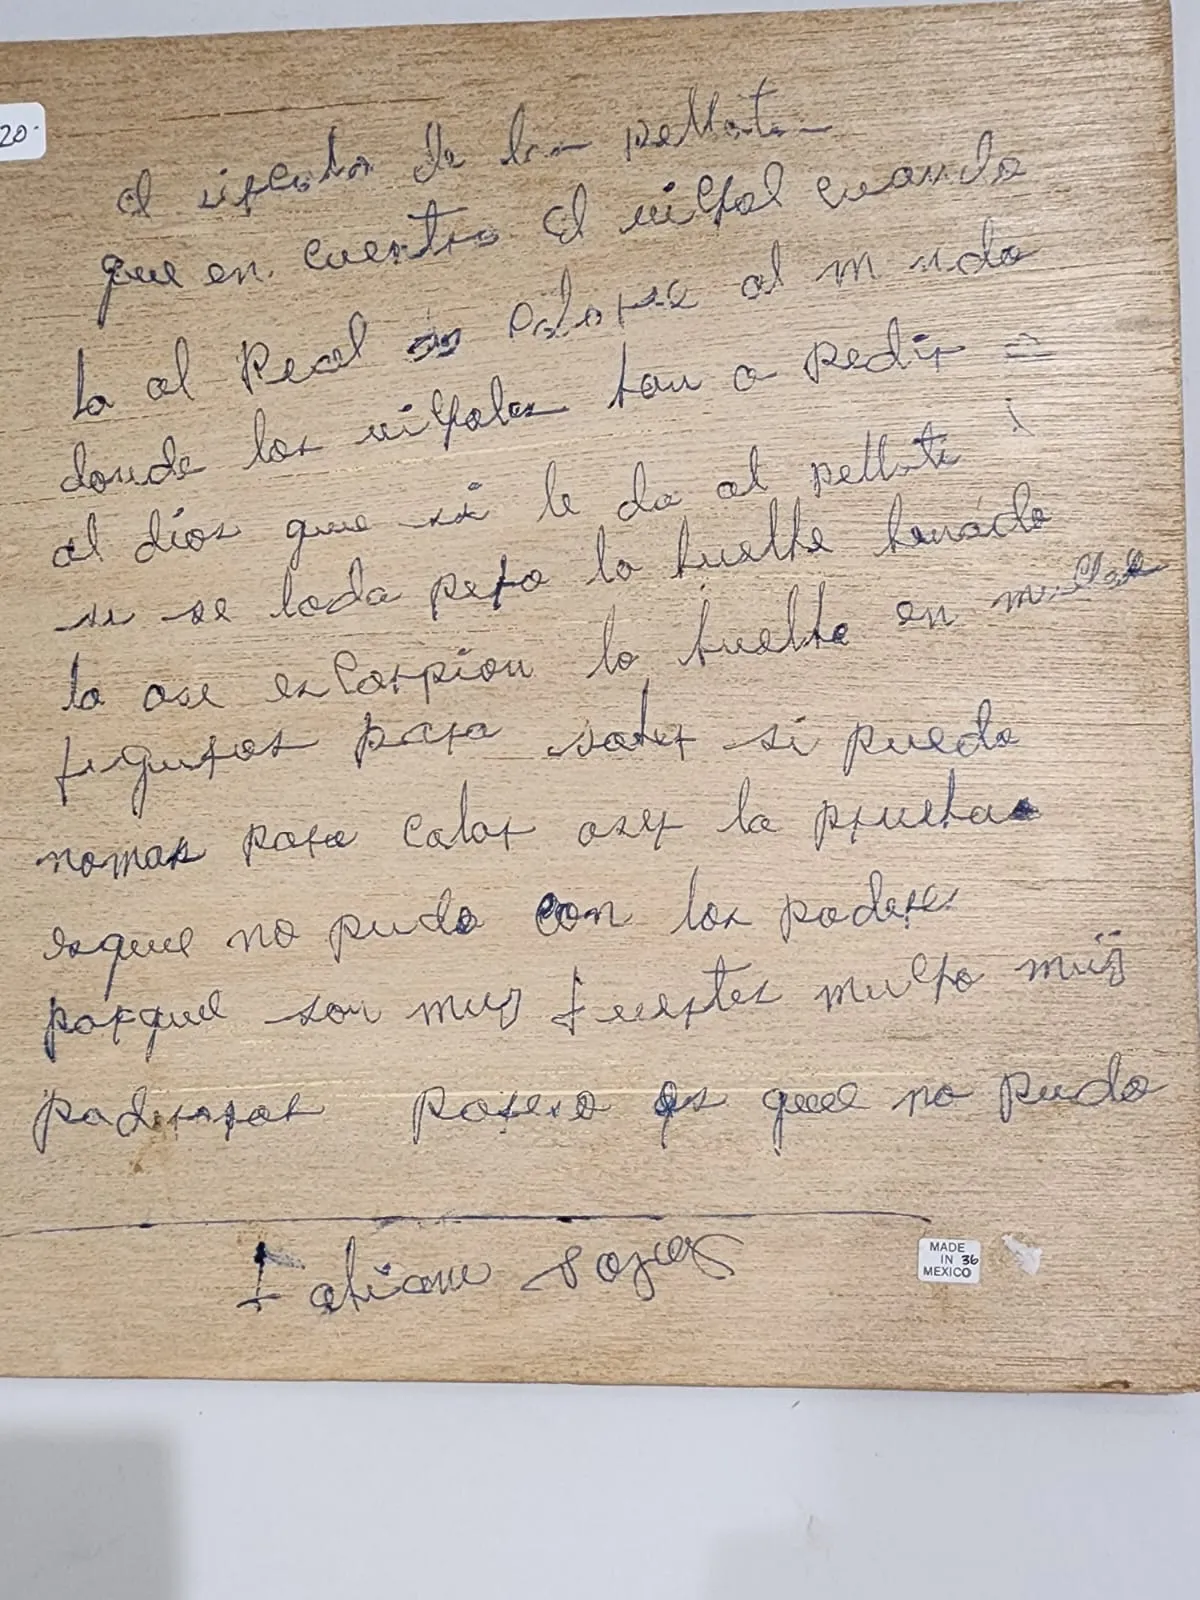 20.
el de la pellote
que en cuentro el milpal cuando
la al Real al mundo
donde los milpales tan a pedir
al dios que si le da al pellote
si se loda pero lo buelbe benado
lo ase escorpion lo buelbe en
figuras para saber si puede
nomas para calar aser la prueba
esque no pudo con los poderes
porque son muy fuertes mulpo muy
poderosos es que no pudo
MADE
IN 36
MEXICO